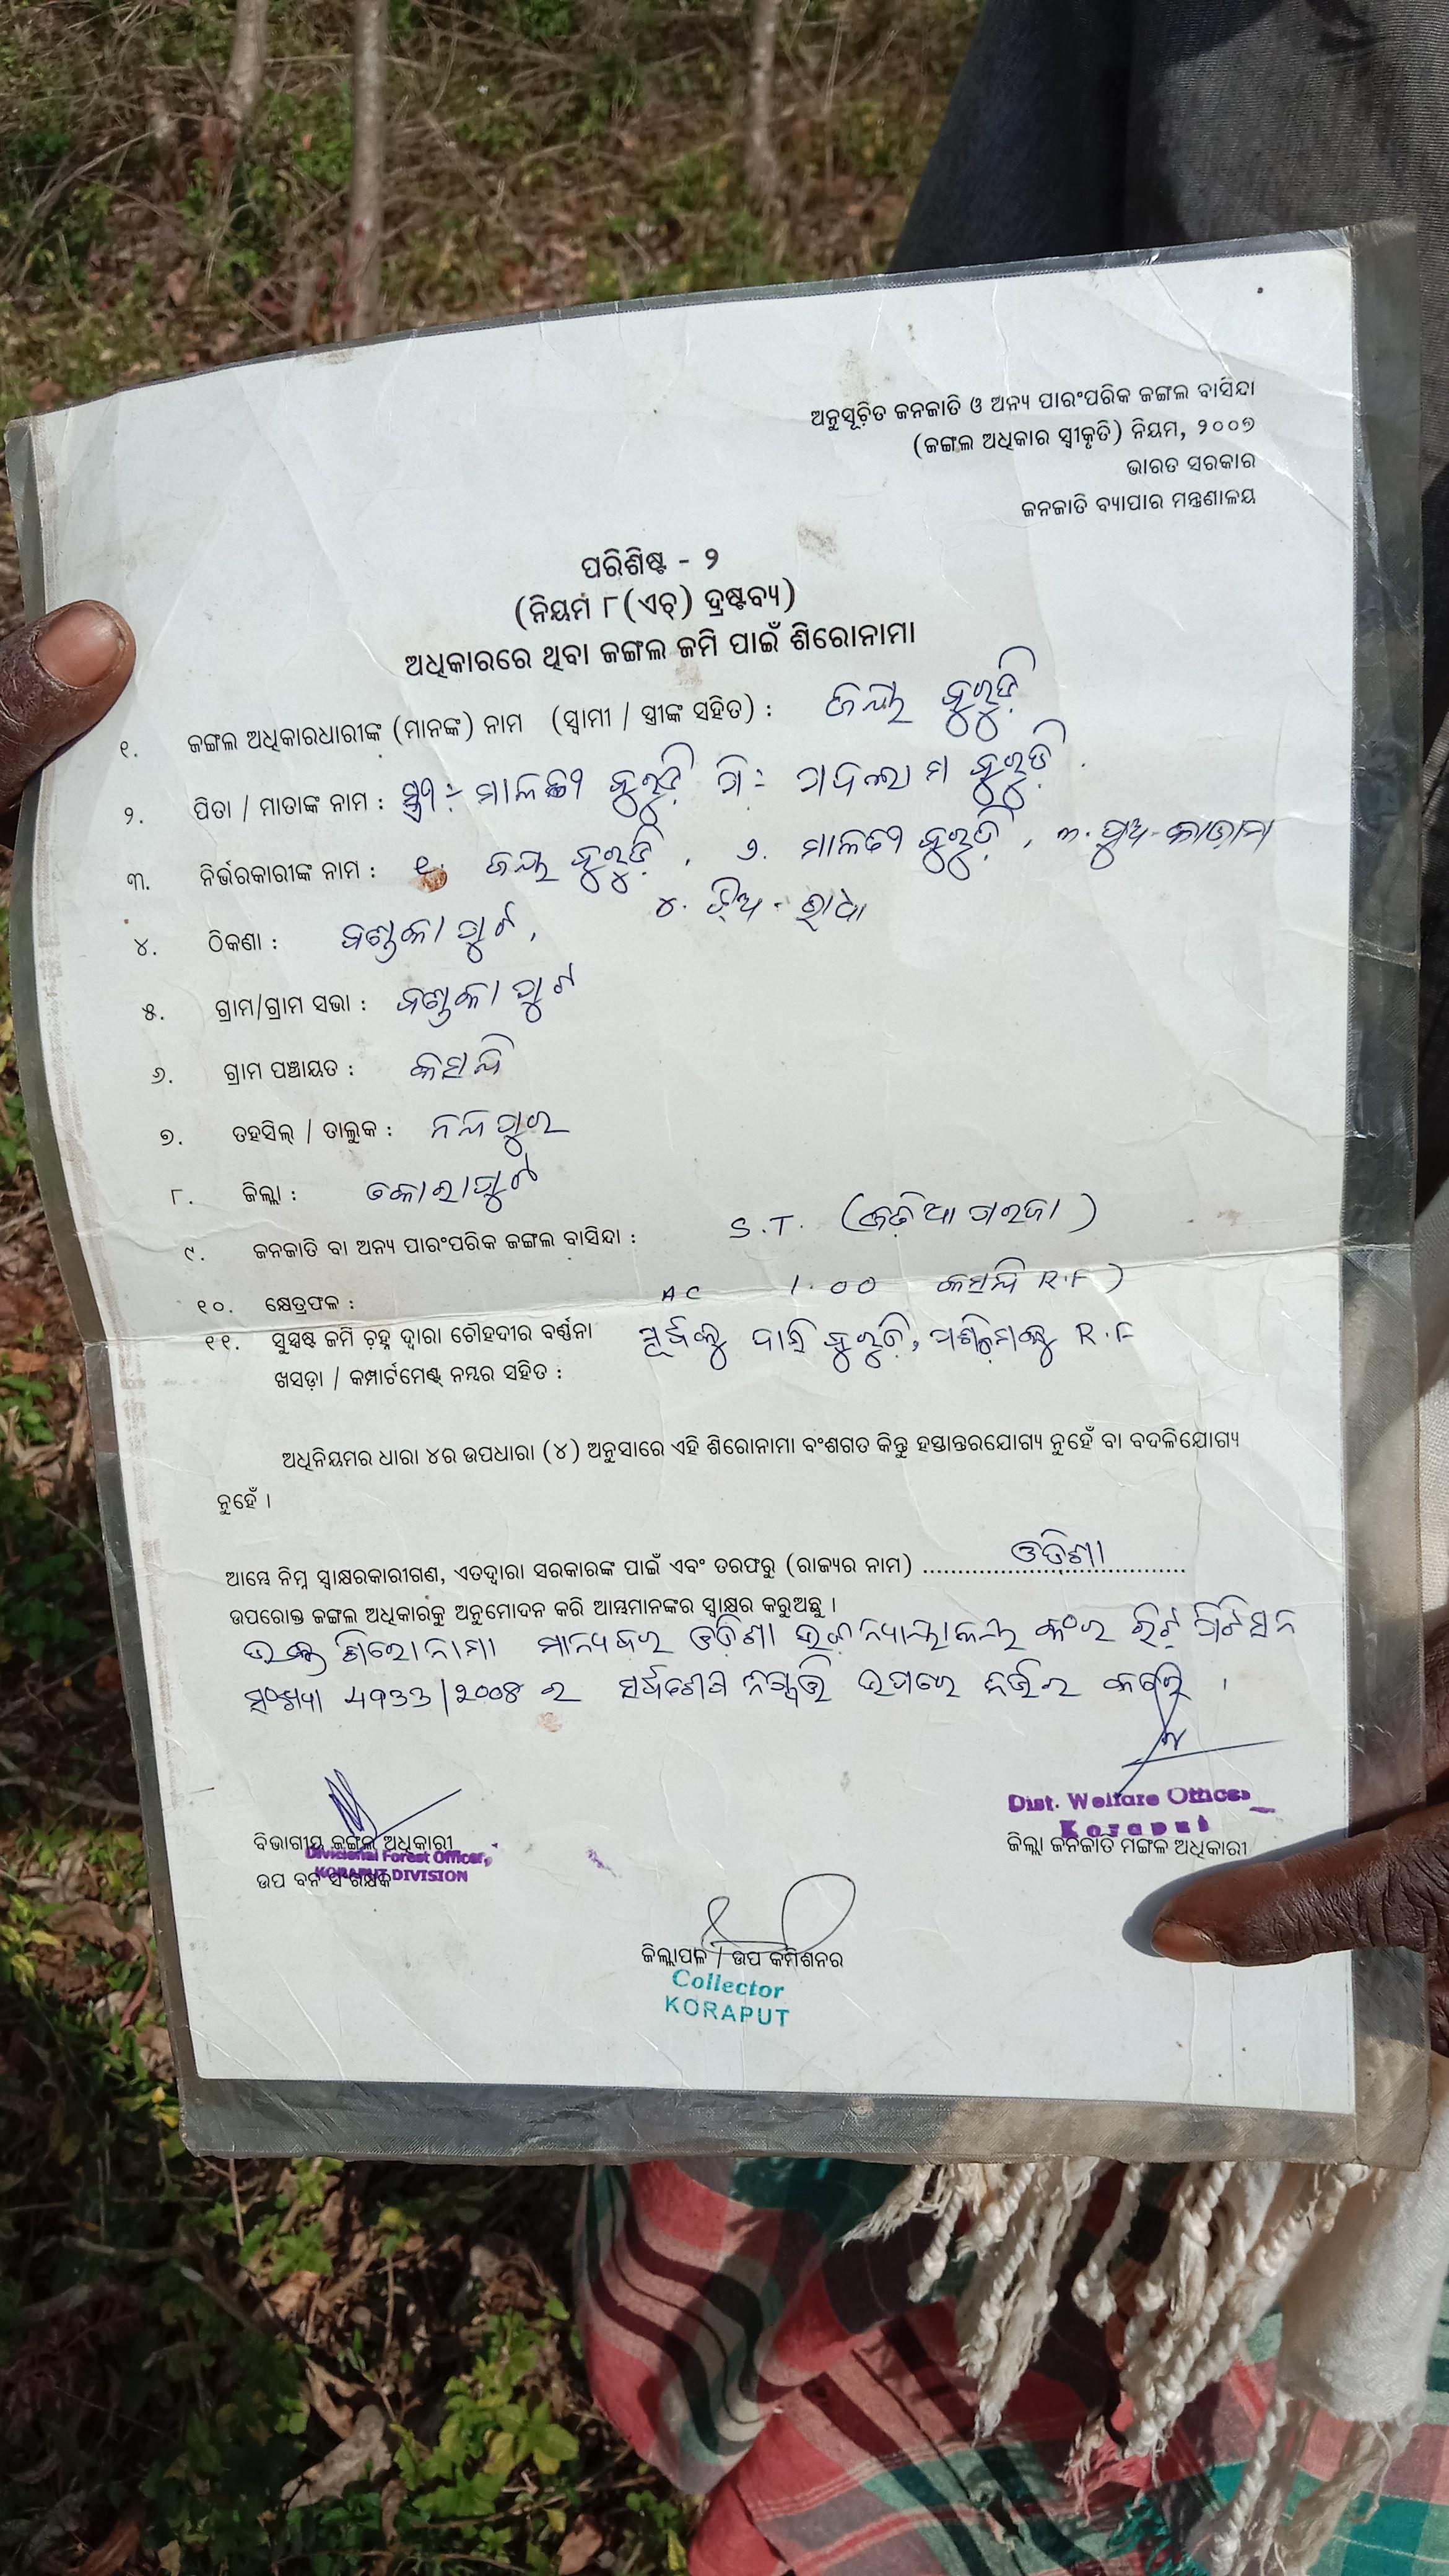 ଅନୁସୂଚିତ ଜନଜାତି ଓ ଅନ୍ୟ ପାରଂପରିକ ଜଙ୍ଗଲ ବାସିନ୍ଦା
(ଜଙ୍ଗଲ ଅଧିକାର ସ୍ୱୀକୃତି) ନିୟମ, ୨୦୦୭
ଭାରତ ସରକାର
ଜନଜାତି ବ୍ୟାପାର ମନ୍ତ୍ରଣାଳୟ
ପରିଶିଷ୍ଟ - ୨
(ନିୟମ ୮(ଏଚ୍) ଦ୍ରଷ୍ଟବ୍ୟ)
ଅଧିକାରରେ ଥିବା ଜଙ୍ଗଲ ଜମି ପାଇଁ ଶିରୋନାମା
୧. ଜଙ୍ଗଲ ଅଧିକାରଧାରୀଙ୍କ (ମାନଙ୍କ) ନାମ (ସ୍ୱାମୀ / ସ୍ତ୍ରୀଙ୍କ ସହିତ) :
୨. ପିତା / ମାତାଙ୍କ ନାମ : ସ୍ତ୍ରୀ :- ମାଳତୀ ହୁରୁଡ଼ି ପି :-
୩. ନିର୍ଭରକାରୀଙ୍କ ନାମ : ୧. ହୁରୁଡ଼ି, ୨. ମାଳତୀ ହୁରୁଡ଼ି, ୩. ପୁଅ -
୪. ଝିଅ - ରାଧା
୪. ଠିକଣା :
୫. ଗ୍ରାମ/ଗ୍ରାମ ସଭା :
୬. ଗ୍ରାମ ପଞ୍ଚାୟତ :
୭. ତହସିଲ୍ / ତାଲୁକ : ନନ୍ଦପୁର
୮. ଜିଲ୍ଲା : କୋରାପୁଟ
୯. ଜନଜାତି ବା ଅନ୍ୟ ପାରଂପରିକ ଜଙ୍ଗଲ ବାସିନ୍ଦା : S.T.
୧୦. କ୍ଷେତ୍ରଫଳ : AC 1.00 R.F)
୧୧. ସୁସ୍ପଷ୍ଟ ଜମି ଚିହ୍ନ ଦ୍ୱାରା ଚୌହଦୀର ବର୍ଣ୍ଣନା ପୂର୍ବକୁ ହୁରୁଡ଼ି, ପଶ୍ଚିମକୁ R.F
ଖସଡ଼ା / କମ୍ପାର୍ଟମେଣ୍ଟ୍ ନମ୍ବର ସହିତ :
ଅଧିନିୟମର ଧାରା ୪ର ଉପଧାରା (୪) ଅନୁସାରେ ଏହି ଶିରୋନାମା ବଂଶଗତ କିନ୍ତୁ ହସ୍ତାନ୍ତରଯୋଗ୍ୟ ନୁହେଁ ବା ବଦଳିଯୋଗ୍ୟ
ନୁହେଁ ।
ଆମ୍ଭେ ନିମ୍ନ ସ୍ୱାକ୍ଷରକାରୀଗଣ, ଏତଦ୍ୱାରା ସରକାରଙ୍କ ପାଇଁ ଏବଂ ତରଫରୁ (ରାଜ୍ୟର ନାମ) ଓଡିଶା
ଉପରୋକ୍ତ ଜଙ୍ଗଲ ଅଧିକାରକୁ ଅନୁମୋଦନ କରି ଆମ୍ଭମାନଙ୍କର ସ୍ୱାକ୍ଷର କରୁଅଛୁ ।
ଉକ୍ତ ଶିରୋନାମା ମାନ୍ୟବର ଓଡ଼ିଶା ଉଚ୍ଚ ନ୍ୟାୟାଳୟର ରିଟ୍ ପିଟିସନ
ସଂଖ୍ୟା ର ସର୍ବଶେଷ ନିଷ୍ପତ୍ତି ଉପରେ ନିର୍ଭର କରେ ।
Dist. Welfare Officer
Koraput
ଜିଲ୍ଲା ଜନଜାତି ମଙ୍ଗଳ ଅଧିକାରୀ
ବିଭାଗୀୟ ଜଙ୍ଗଲ ଅଧିକାରୀ
Divisional Forest Officer,
KORAPUT DIVISION
ଉପ ବନ ସଂରକ୍ଷକ
ଜିଲ୍ଲାପାଳ / ଉପ କମିଶନର
Collector
KORAPUT